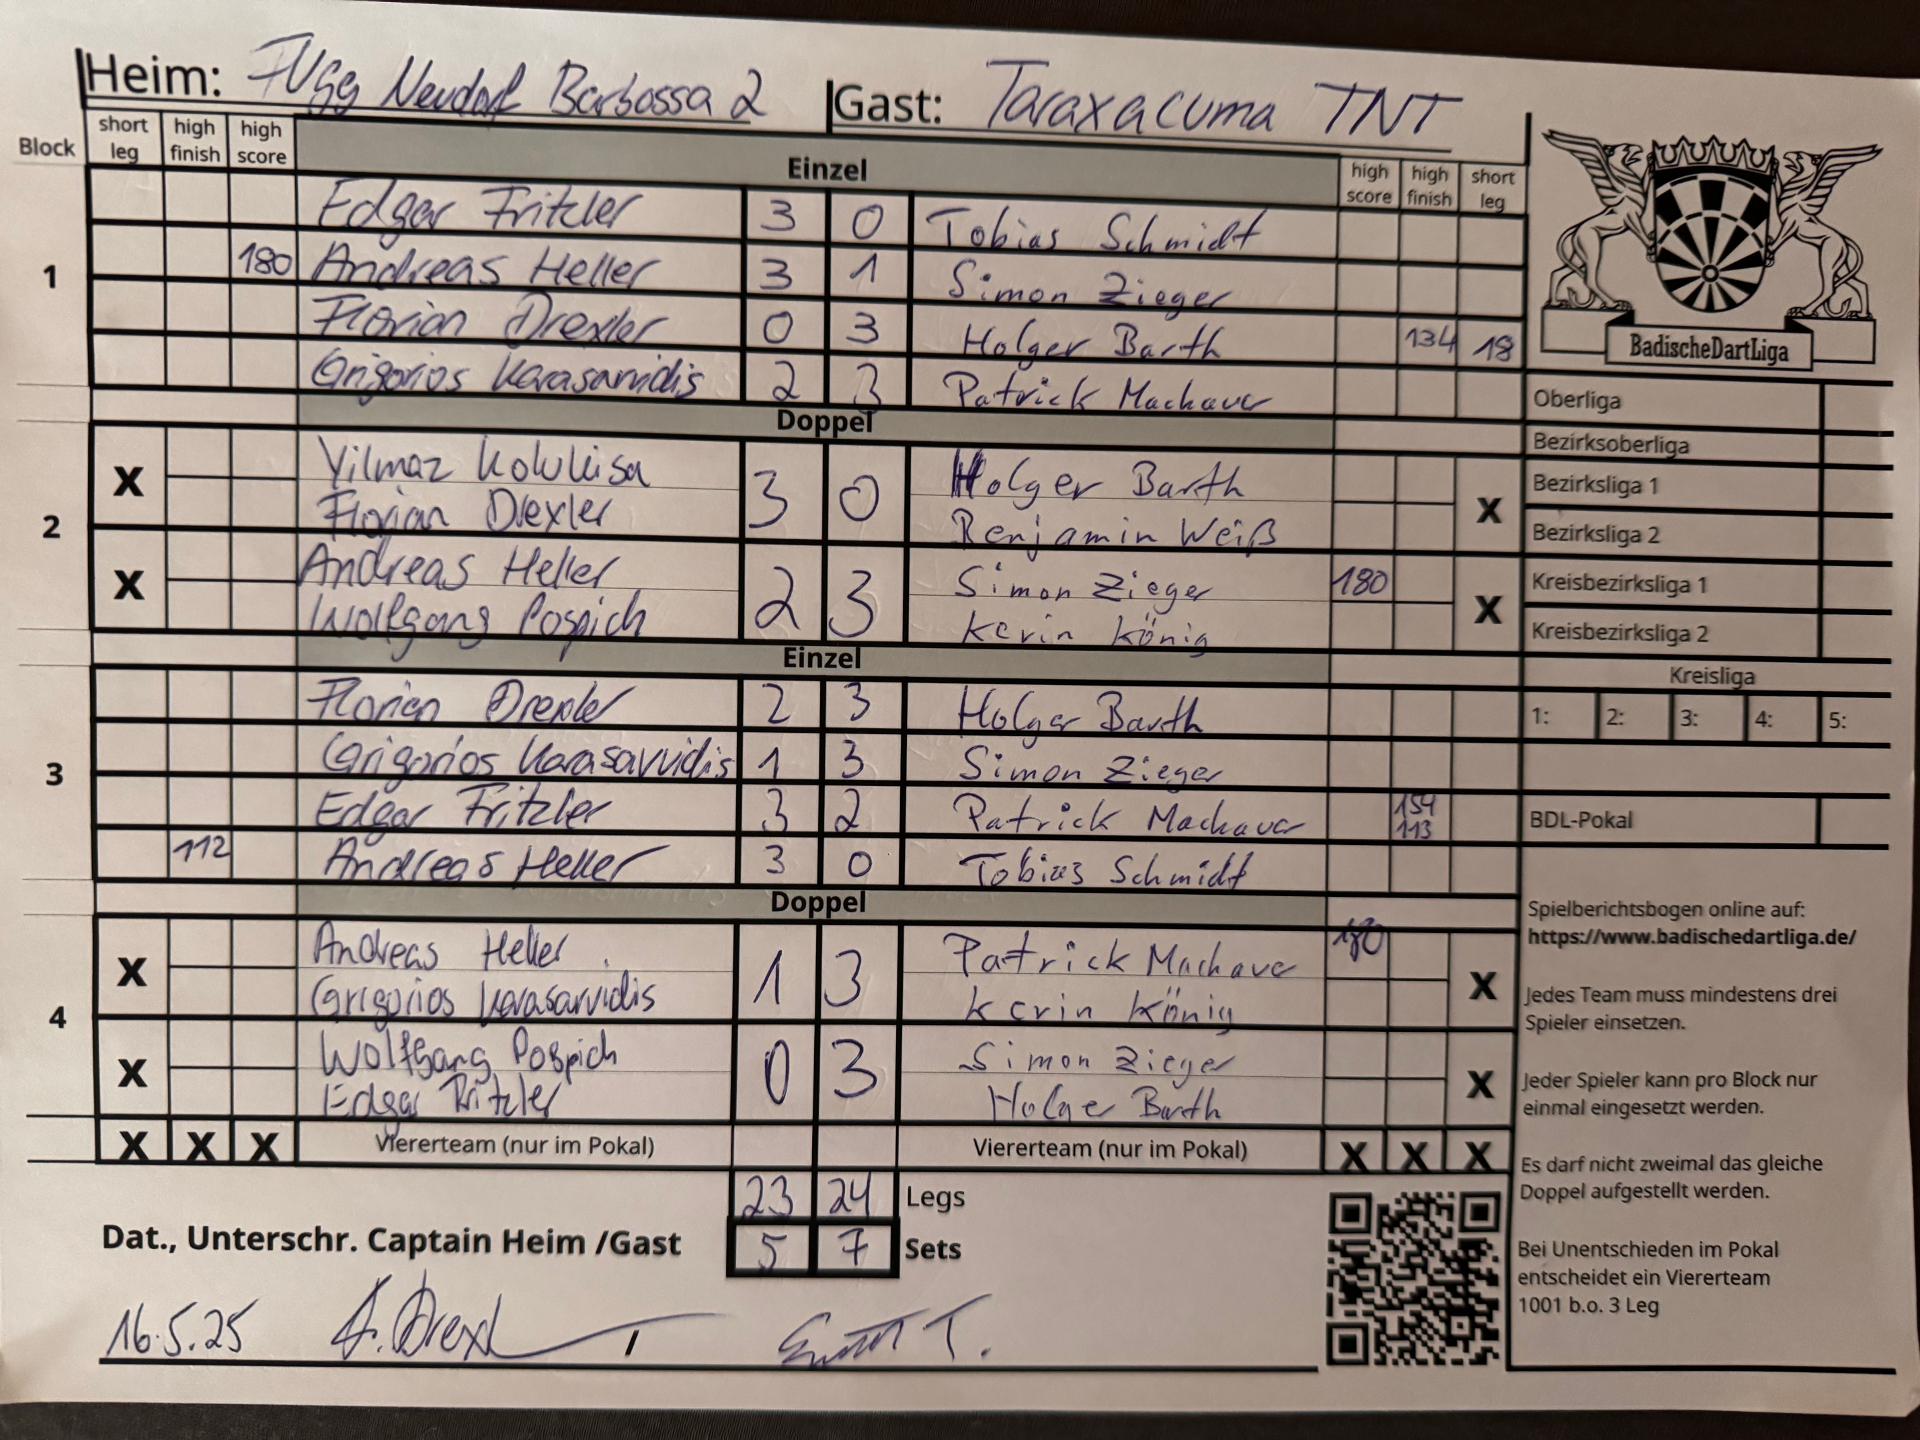 Heim: FVgg Neudorf Barbossa 2 Gast: Taraxacuma TNT
Block short leg high finish high score Einzel high score high finish short leg
1
Edgar Fritzler 3 0 Tobias Schmidt
180 Andreas Heller 3 1 Simon Zieger
Florian Drexler 0 3 Holger Barth 134 18
Grigorios Karasavvidis 2 3 Patrick Machauer
Doppel
2
X Yilmaz Kolukisa 3 0 Holger Barth X
Florian Drexler Benjamin Weiß
X Andreas Heller 2 3 Simon Zieger 180 X
Wolfgang Pospich Kevin König
Einzel
3
Florian Drexler 2 3 Holger Barth
Grigorios Karasavvidis 1 3 Simon Zieger
Edgar Fritzler 3 2 Patrick Machauer 154
113
112 Andreas Heller 3 0 Tobias Schmidt
Doppel
4
X Andreas Heller 1 3 Patrick Machauer 180 X
Grigorios Karasavvidis Kevin König
X Wolfgang Pospich 0 3 Simon Zieger X
Edgar Fritzler Holger Barth
X X X Viererteam (nur im Pokal) Viererteam (nur im Pokal) X X X
23 24 Legs
5 7 Sets
Dat., Unterschr. Captain Heim /Gast
16.5.25 /
BadischeDartLiga
Oberliga
Bezirksoberliga
Bezirksliga 1
Bezirksliga 2
Kreisbezirksliga 1
Kreisbezirksliga 2
Kreisliga
1: 2: 3: 4: 5:
BDL-Pokal
Spielberichtsbogen online auf:
https://www.badischedartliga.de/
Jedes Team muss mindestens drei
Spieler einsetzen.
Jeder Spieler kann pro Block nur
einmal eingesetzt werden.
Es darf nicht zweimal das gleiche
Doppel aufgestellt werden.
Bei Unentschieden im Pokal
entscheidet ein Viererteam
1001 b.o. 3 Leg